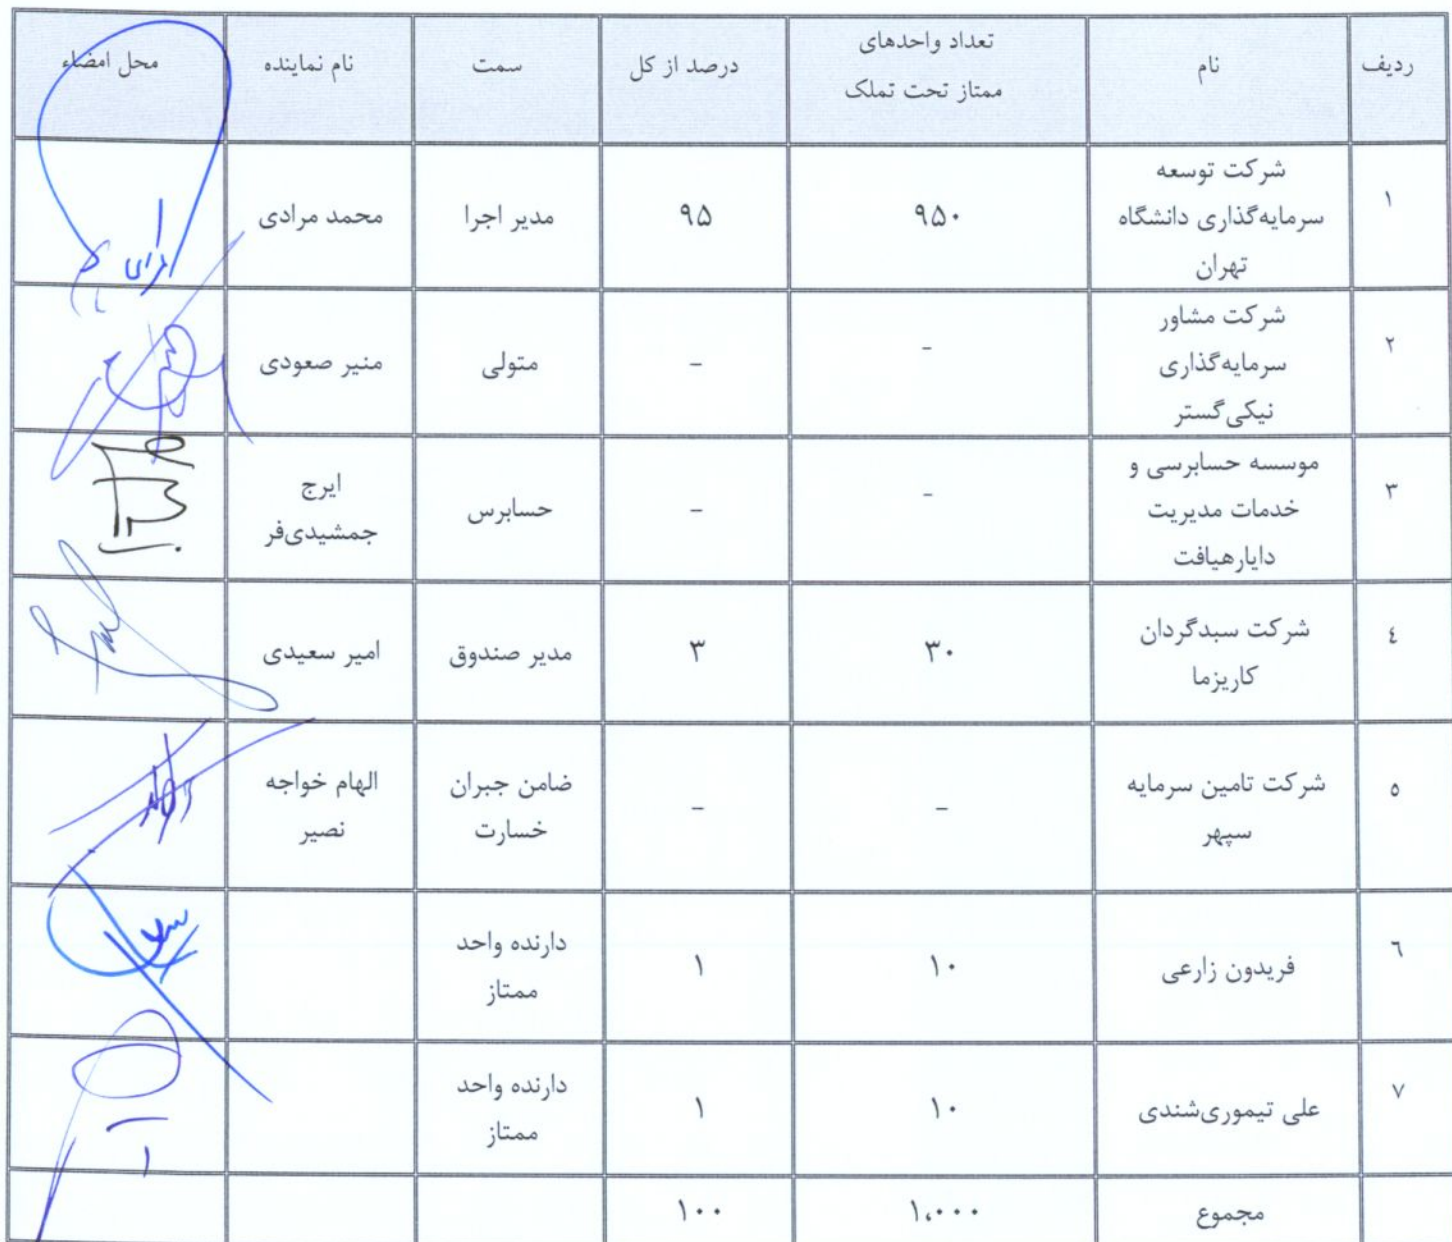 ردیف نام تعداد واحدهای ممتاز تحت تملک درصد از کل سمت نام نماینده محل امضاء
۱ شرکت توسعه سرمایه‌گذاری دانشگاه تهران ۹۵۰ ۹۵ مدیر اجرا محمد مرادی
۲ شرکت مشاور سرمایه‌گذاری نیکی‌گستر - - متولی منیر صعودی
۳ موسسه حسابرسی و خدمات مدیریت دایارهیافت - - حسابرس ایرج جمشیدی‌فر
٤ شرکت سبدگردان کاریزما ۳۰ ۳ مدیر صندوق امیر سعیدی
٥ شرکت تامین سرمایه سپهر - - ضامن جبران خسارت الهام خواجه نصیر
٦ فریدون زارعی ۱۰ ۱ دارنده واحد ممتاز
۷ علی تیموری‌شندی ۱۰ ۱ دارنده واحد ممتاز
مجموع ۱،۰۰۰ ۱۰۰